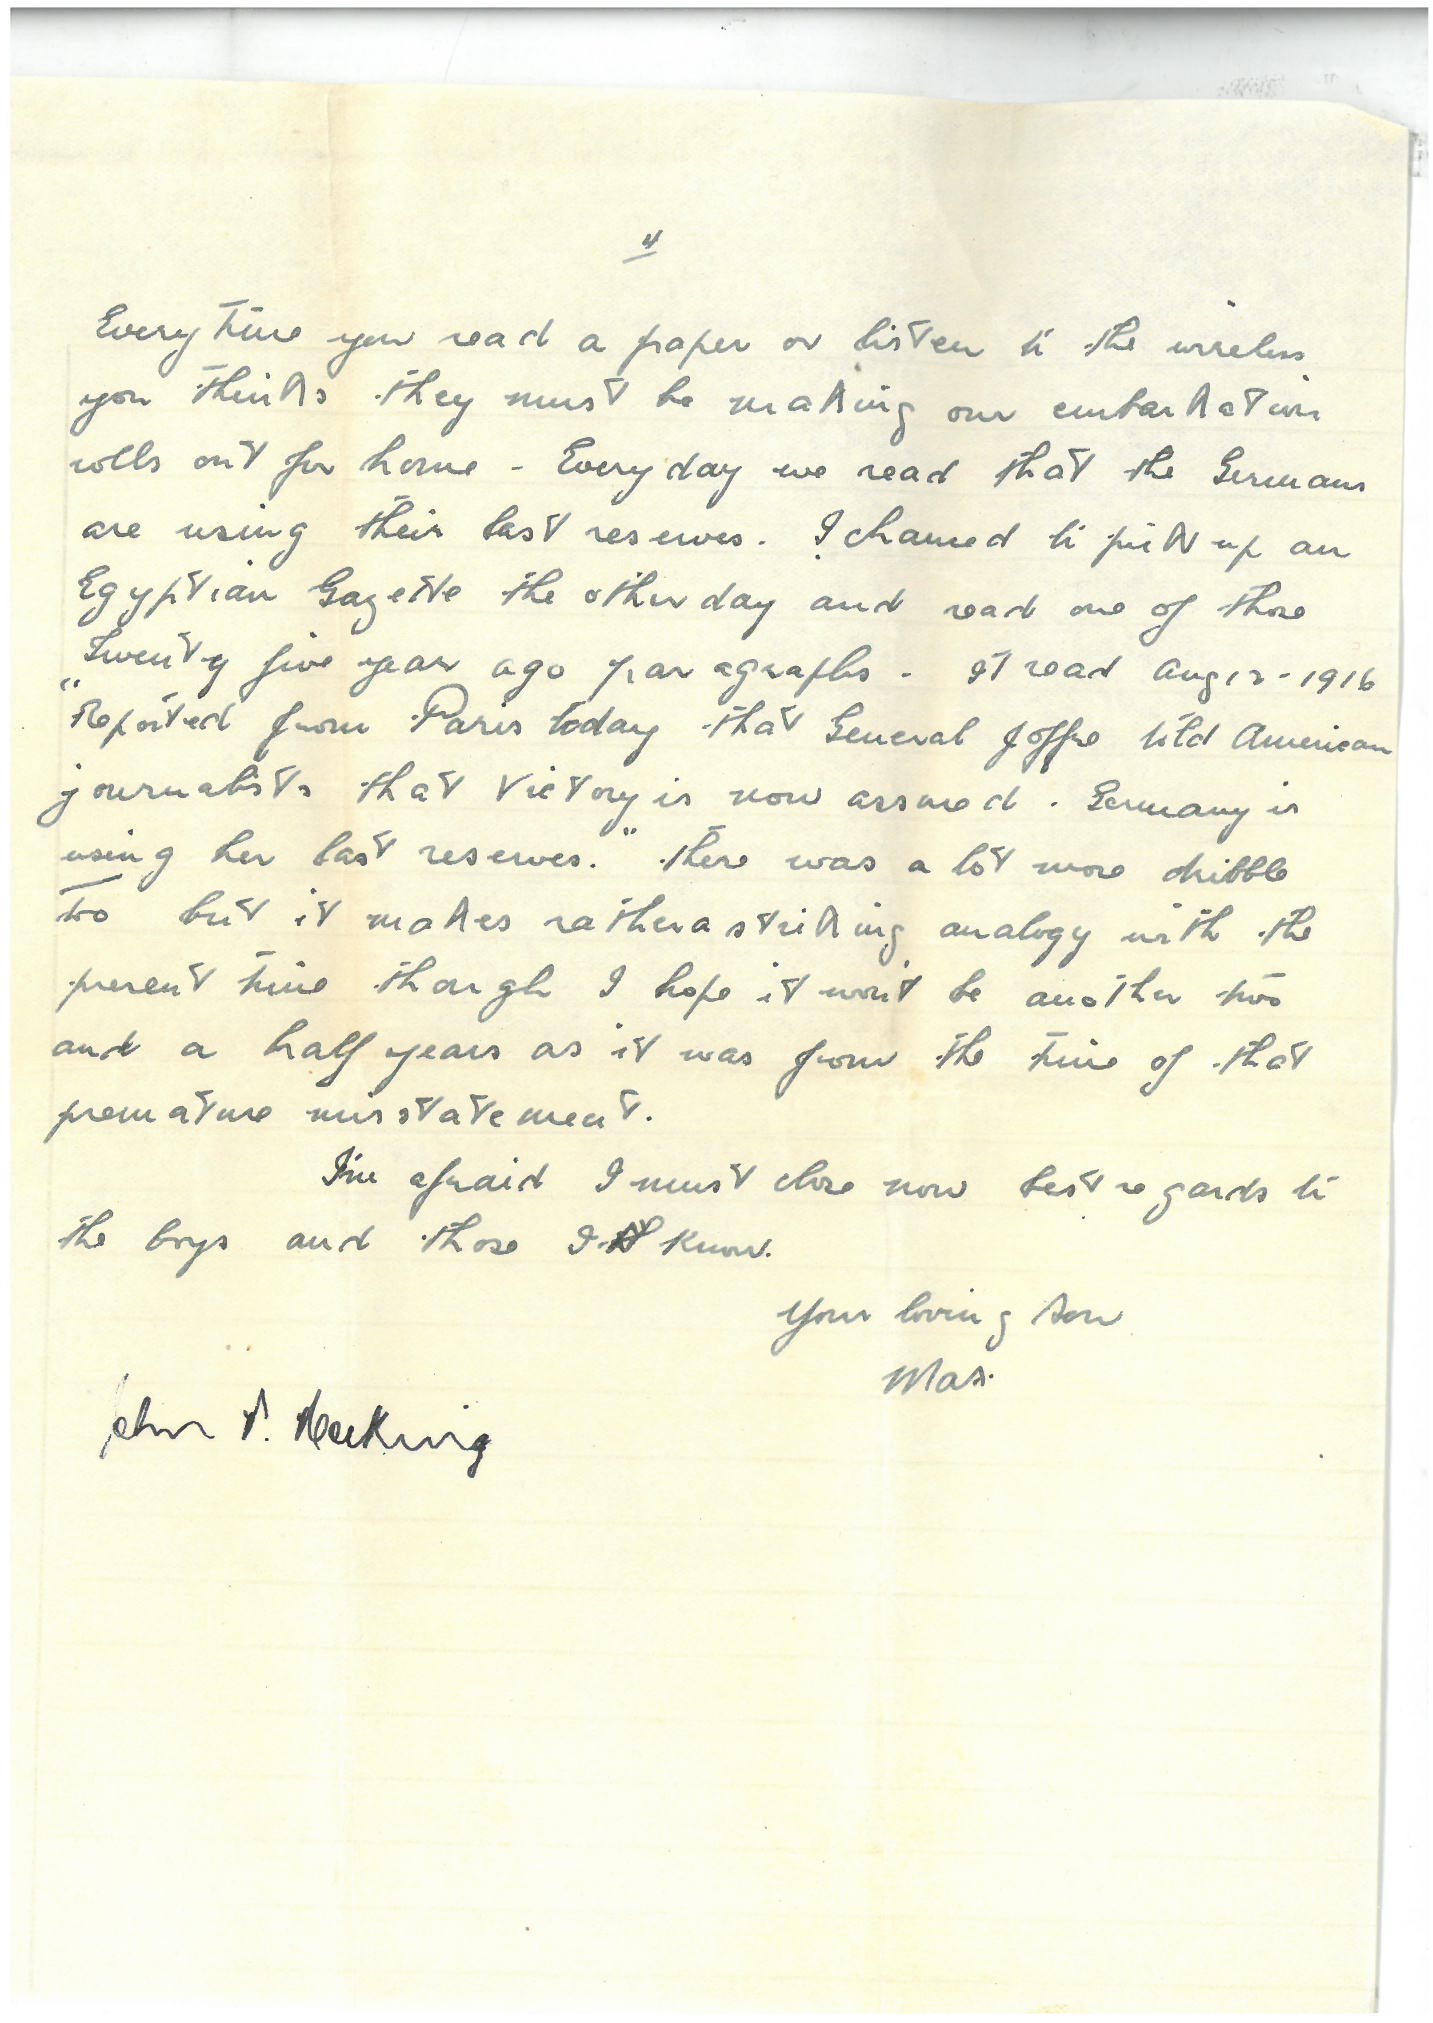 4
Every time you read a paper or listen to the wireless
you thinks they must be making our embarkation
rolls out for home - Every day we read that the Germans
are using their last reserves. I chanced to pick up an
Egyptian Gazette the other day and read one of those
Twenty five year ago paragraphs. It read Aug 12 - 1916
"Reported from Paris today that General Joffre told American
journalists that Victory is now assured. Germany is
using her last reserves." There was a lot more dribble
too but it makes rather a striking analogy with the
present time though I hope it won't be another two
and a half years as it was from the time of that
premature misstatement.
I'm afraid I must close now best regards to
the boys and those I know.
Your loving son
Max.
John